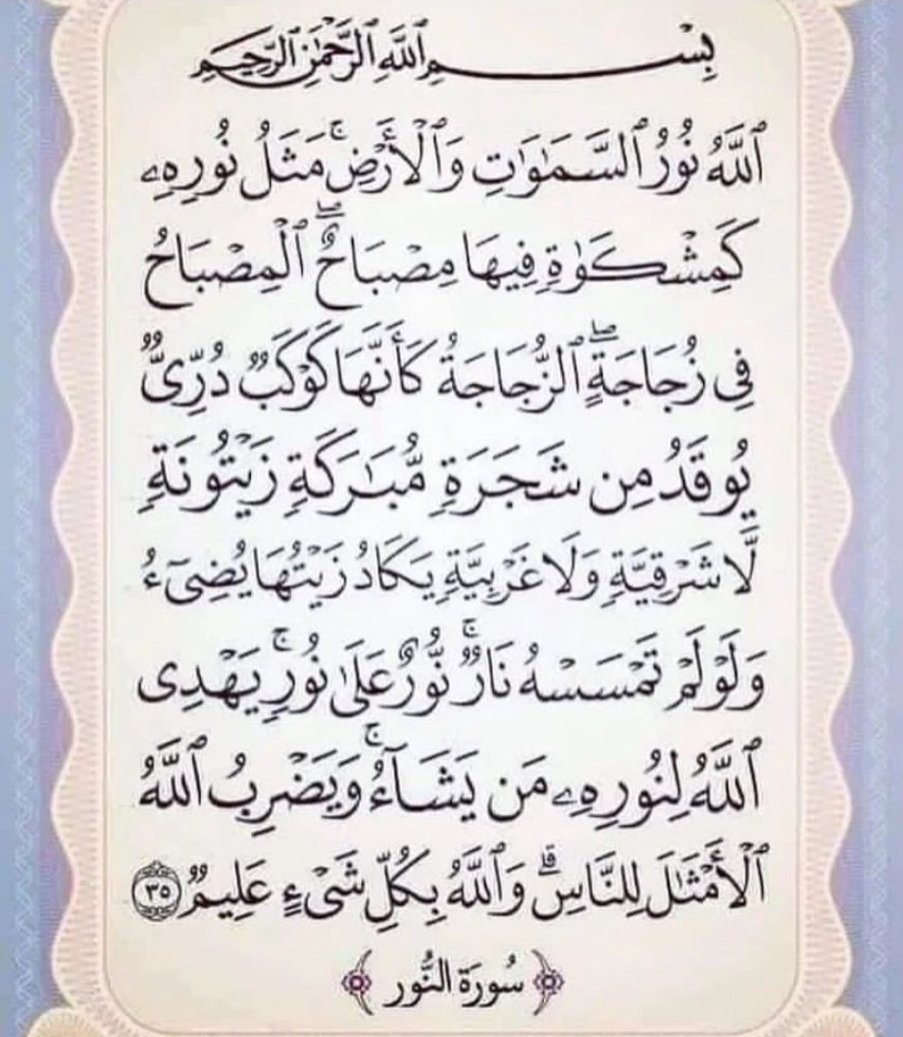 بِسْمِ ٱللَّهِ ٱلرَّحْمَٰنِ ٱلرَّحِيمِ
ٱللَّهُ نُورُ ٱلسَّمَـٰوَٰتِ وَٱلْأَرْضِ ۚ مَثَلُ نُورِهِۦ
كَمِشْكَوٰةٍ فِيهَا مِصْبَاحٌ ۖ ٱلْمِصْبَاحُ
فِى زُجَاجَةٍ ۖ ٱلزُّجَاجَةُ كَأَنَّهَا كَوْكَبٌ دُرِّىٌّ
يُوقَدُ مِن شَجَرَةٍ مُّبَـٰرَكَةٍ زَيْتُونَةٍ
لَّا شَرْقِيَّةٍ وَلَا غَرْبِيَّةٍ يَكَادُ زَيْتُهَا يُضِىٓءُ
وَلَوْ لَمْ تَمْسَسْهُ نَارٌ ۚ نُّورٌ عَلَىٰ نُورٍ ۗ يَهْدِى
ٱللَّهُ لِنُورِهِۦ مَن يَشَآءُ ۚ وَيَضْرِبُ ٱللَّهُ
ٱلْأَمْثَـٰلَ لِلنَّاسِ ۗ وَٱللَّهُ بِكُلِّ شَىْءٍ عَلِيمٌ ٣٥
﴿سُورَة النُّور﴾